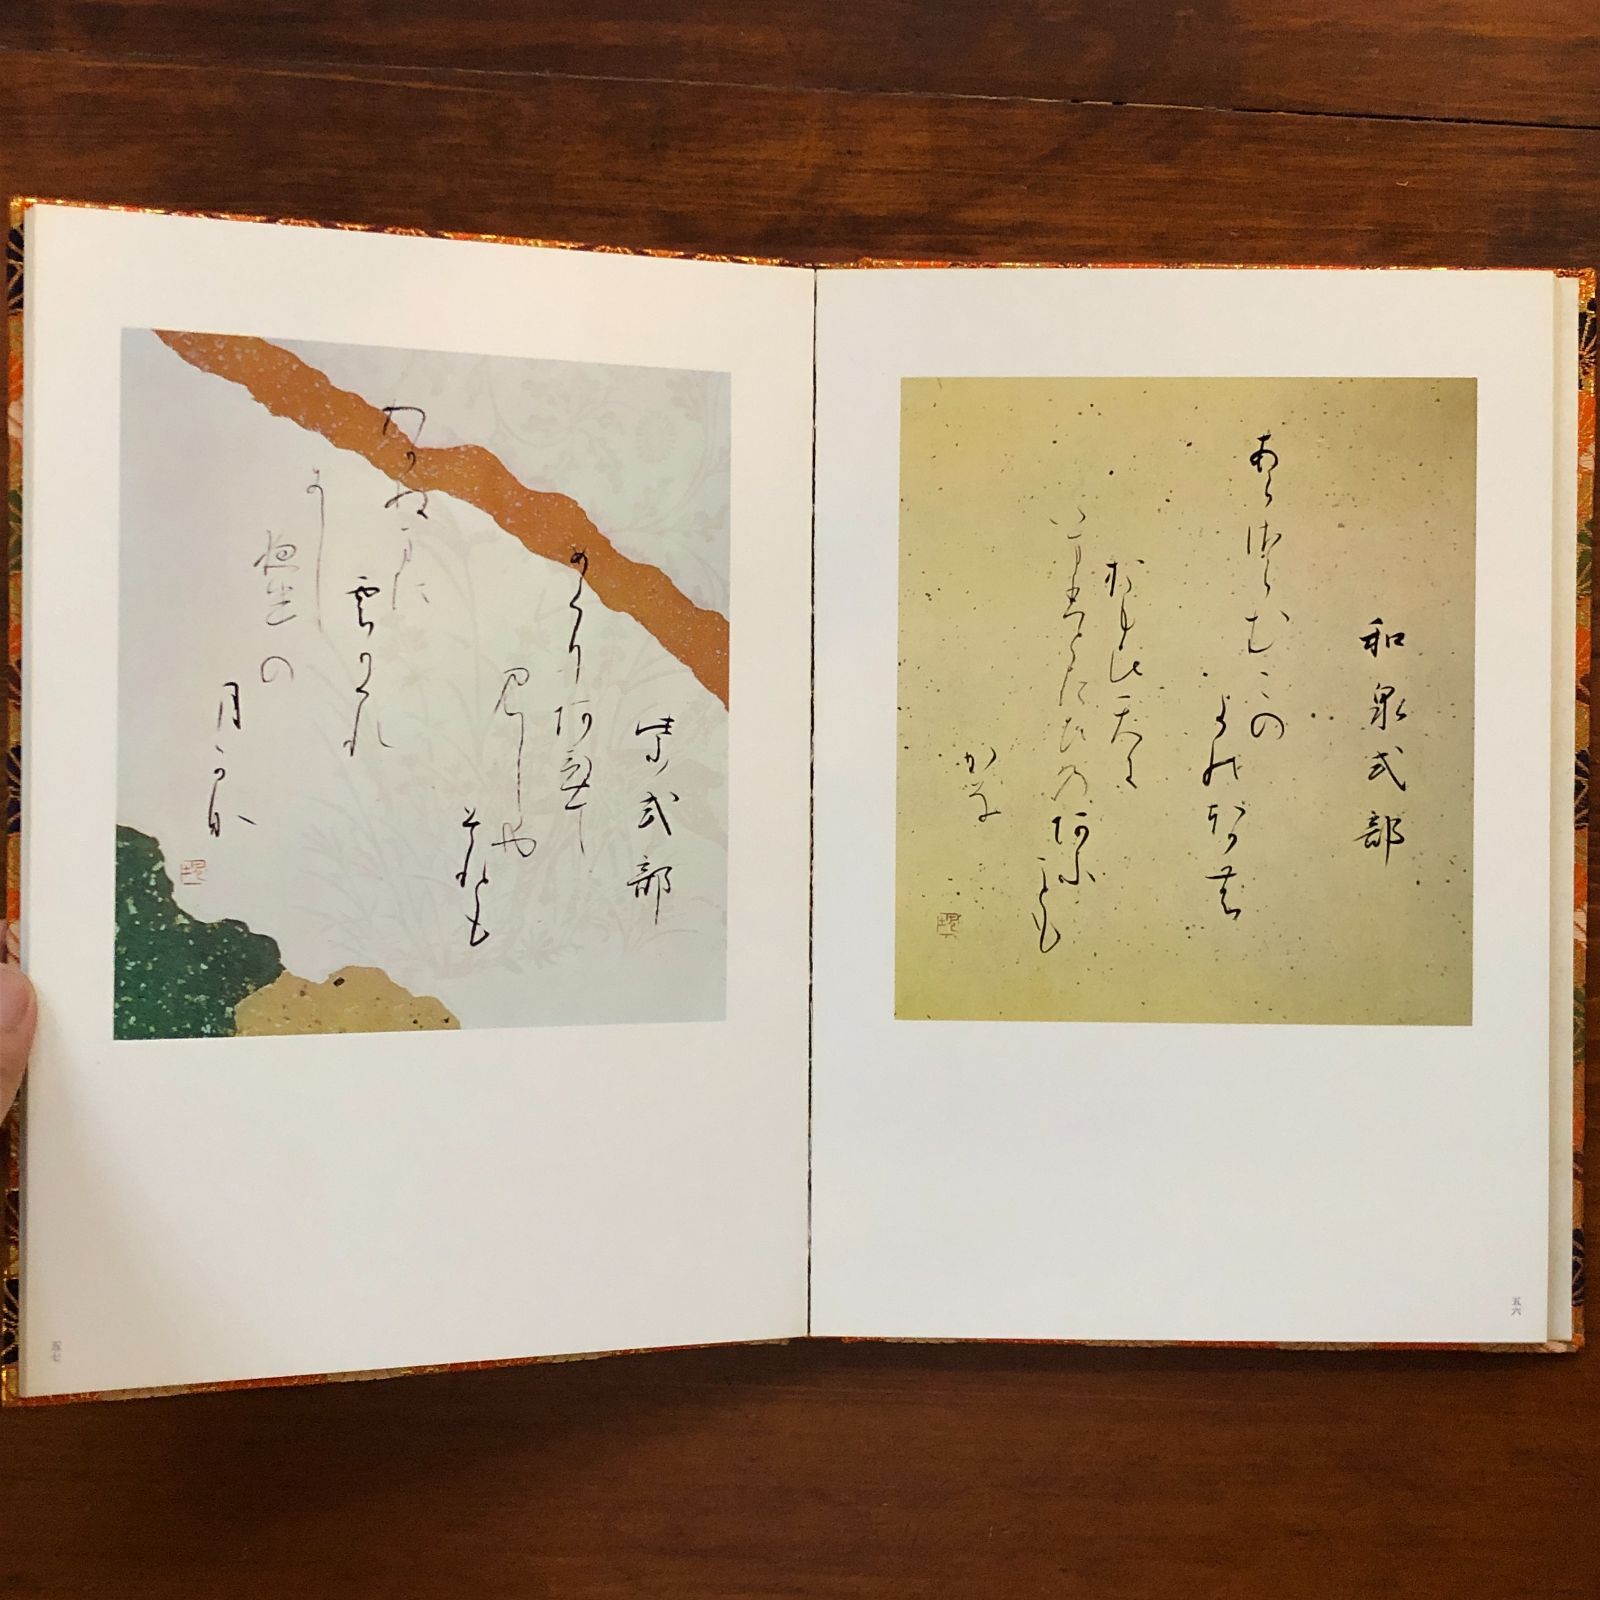 和泉式部
あらさらむこの
よのほかの
おもひ天に
いまひとたひの阿ふ
ことも
かな
五六
紫式部
めくり阿ひて
見しや
それとも
わかぬまに
雲かくれ
にし
夜半の
月かな
五七